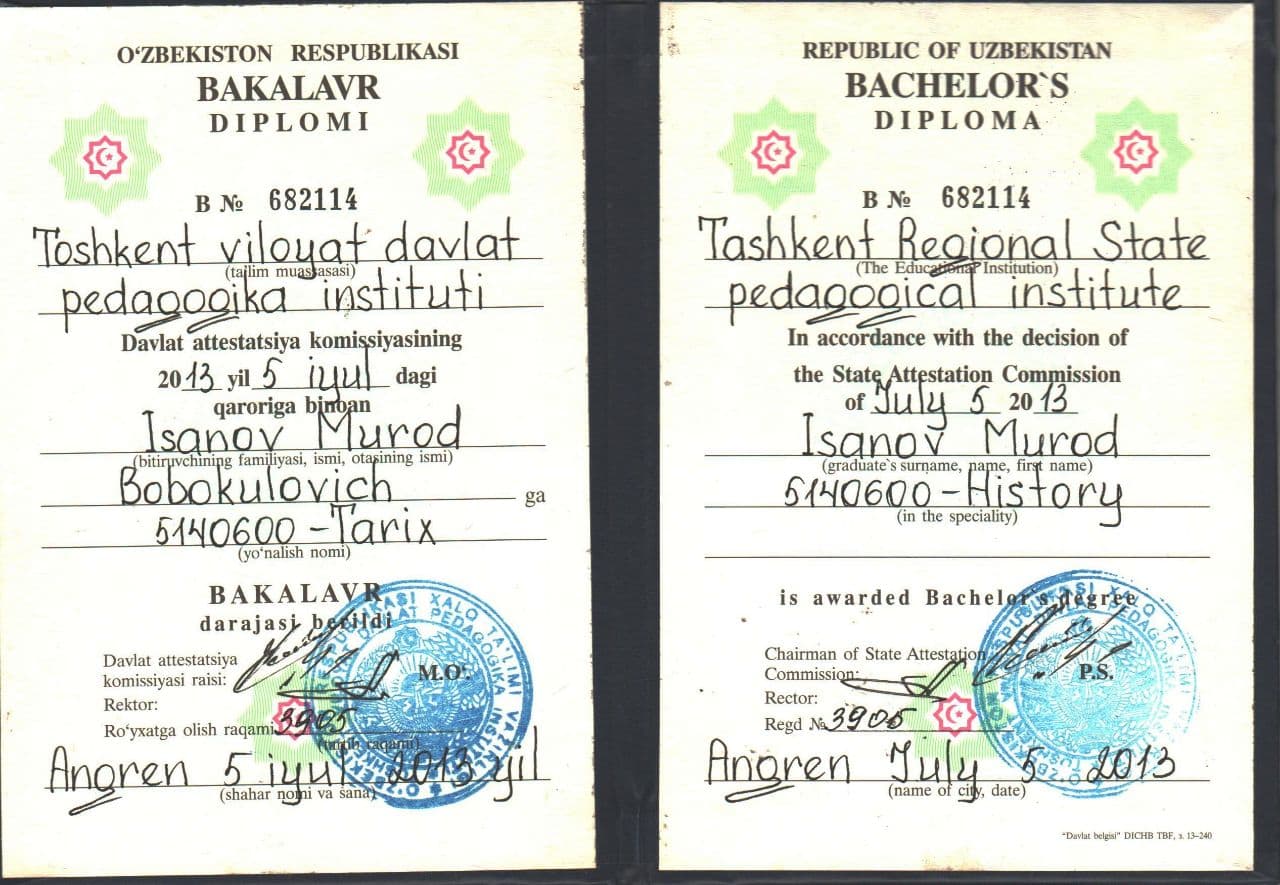 O‘ZBEKISTON RESPUBLIKASI
BAKALAVR
DIPLOMI
B № 682114
Toshkent viloyat davlat
(ta'lim muassasasi)
pedagogika instituti
Davlat attestatsiya komissiyasining
2013 yil 5 iyul dagi
qaroriga binoan
Isanov Murod
(bitiruvchining familiyasi, ismi, otasining ismi)
Bobokulovich ga
5140600 - Tarix
(yo‘nalish nomi)
BAKALAVR
darajasi berildi
Davlat attestatsiya
komissiyasi raisi:
M.O‘.
Rektor:
Ro‘yxatga olish raqami 3905
Angren 5 iyul 2013 yil
(shahar nomi va sana)
REPUBLIC OF UZBEKISTAN
BACHELOR`S
DIPLOMA
B № 682114
Tashkent Regional State
(The Educational Institution)
pedagogical institute
In accordance with the decision of
the State Attestation Commission
of July 5 2013
Isanov Murod
(graduate`s surname, name, first name)
5140600 - History
(in the speciality)
is awarded Bachelor`s degree
Chairman of State Attestation
Commission:
P.S.
Rector:
Regd № 3905
Angren July 5 2013
(name of city, date)
"Davlat belgisi" DICHB TBF, з. 13–240